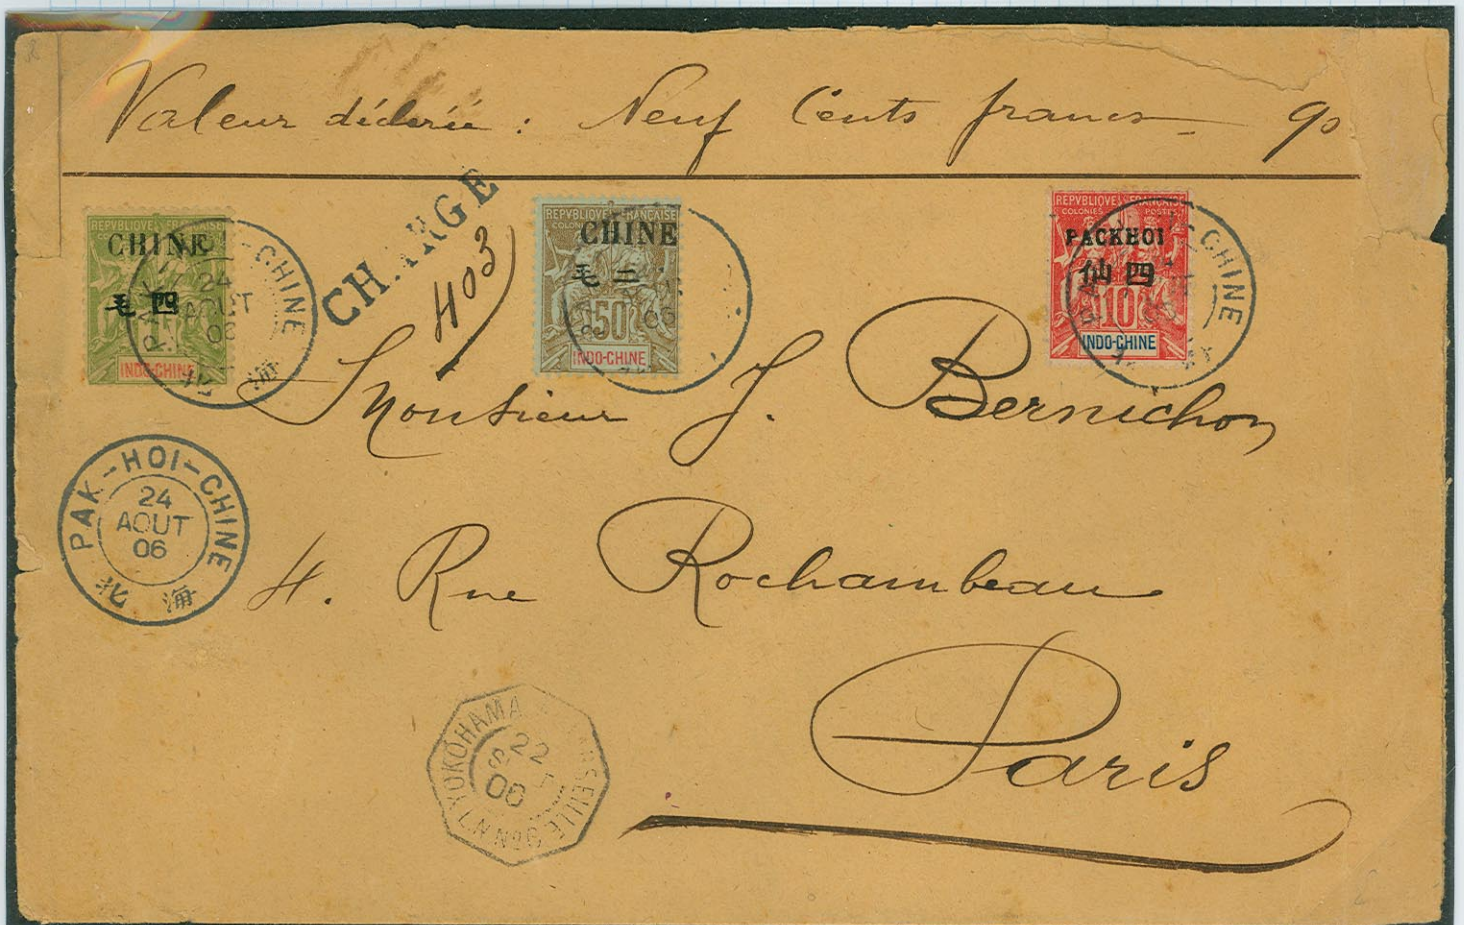 Valeur déclarée : Neuf Cents francs 90
CHARGE
403
REPVBLIQVE FRANÇAISE
CHINE
毛 四
INDO-CHINE
REPVBLIQVE FRANÇAISE
CHINE
毛 二
50
INDO-CHINE
REPVBLIQVE FRANÇAISE
COLONIES POSTES
PACKHOI
仙 四
10
INDO-CHINE
PAK-HOI-CHINE
24
AOUT
06
海
Monsieur J. Bernichon
PAK-HOI-CHINE
24
AOUT
06
北 海
4. Rue Rochambeau
Paris
YOKOHAMA A MARSEILLE
22
SEPT
06